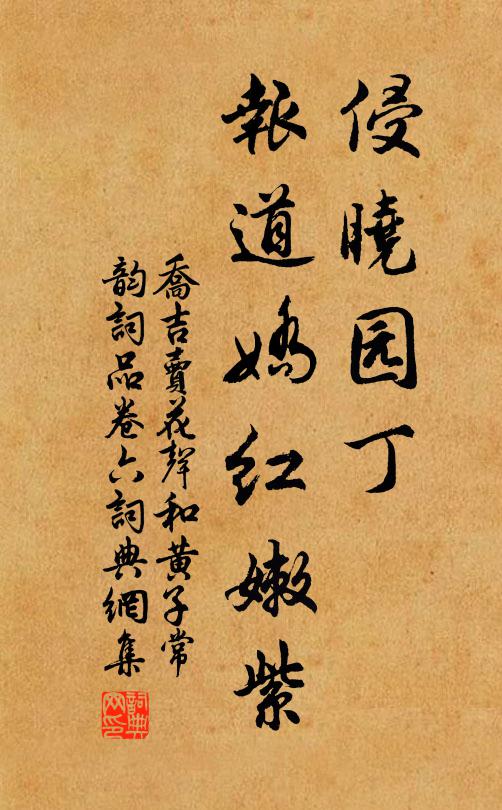 侵曉园丁
報道嬌红嫩紫
喬吉賣花聲和黄子常
韵詞品卷六詞典網集
詞典网印